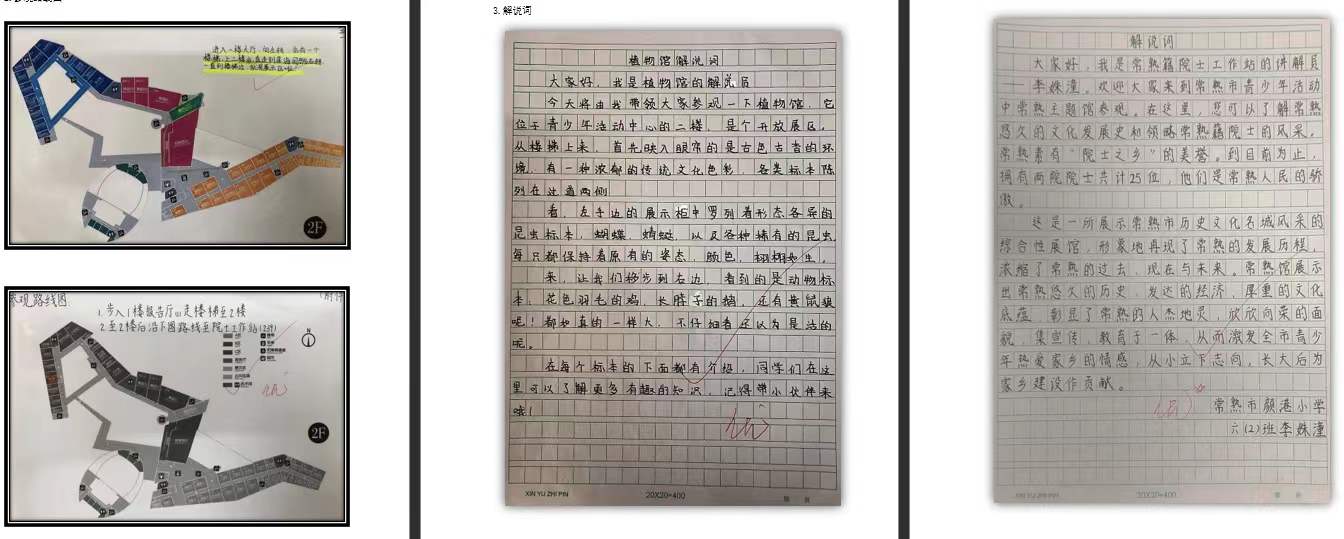 3. 解说词
进入一楼大厅，向左转，会有一个
2F
参观路线图
1. 步入1楼报告厅
走楼梯至2楼
2. 至2楼后沿下图路线至院士工作站
N
2F
植物馆解说词
大家好，我是植物馆的解说员
今天将由我带领大家参观一下植物馆，它
位于青少年活动中心的二楼，是个开放展区，
从楼梯上来，首先映入眼帘的是古色古香的环
境，有一种浓郁的传统文化色彩，各类标本陈
列在过道两侧
看，左手边的展示柜中罗列着形态各异的
昆虫标本，蝴蝶、蜻蜓，以及各种稀有的昆虫
每只都保持着原有的姿态，颜色，栩栩如生，
来，让我们移步到右边，看到的是动物标
本，花色羽毛的鸡，长脖子的鹅，还有黄鼠狼
呢！都和真的一样大，不仔细看还以为是活的
呢。
在每个标本的下面都有介绍，同学们在这
里可以了解更多有趣的知识，记得带小伙伴来
哦！
XIN YU ZHI PIN
20X20=400
解说词
大家好，我是常熟籍院士工作站的讲解员
——李姝潼。欢迎大家来到常熟市青少年活动
中常熟主题馆参观。在这里，您可以了解常熟
悠久的文化发展史和领略常熟籍院士的风采。
常熟素有“院士之乡”的美誉。到目前为止，
拥有两院院士共计25位，他们是常熟人民的骄
傲。
这是一所展示常熟市历史文化名城风采的
综合性展馆，形象地再现了常熟的发展历程，
浓缩了常熟的过去、现在与未来。常熟馆展示
出常熟悠久的历史、发达的经济、厚重的文化
底蕴，彰显了常熟的人杰地灵，欣欣向荣的面
貌，集宣传、教育于一体，从而激发全市青少
年热爱家乡的情感，从小立下志向，长大后为
家乡建设作贡献。
常熟市颜港小学
六(2)班李姝潼
XIN YU ZHI PIN
20X20=400